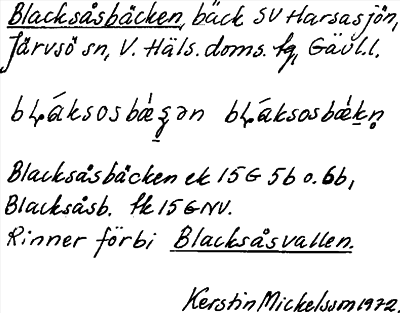 Blacksåsbäcken, bäck SV Harsasjön,
Järvsö sn, V. Häls. doms. fg, Gävl.l.
bḷáksosbǽʒ̣ən bḷáksosbǽkṇ
Blacksåsbäcken ek 15G 5b o. 6b,
Blacksåsb. tk 15 G NV.
Rinner förbi Blacksåsvallen.
Kerstin Mickelsson 1972.